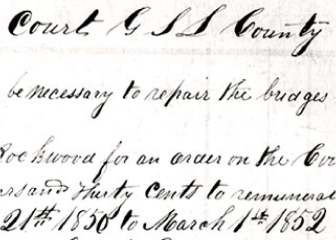 Court G S L County
be necessary to repair the bridges
Rockwood for an order on the Cou
ersand thirty cents to remunerat
21st 1850 to March 1st 1852